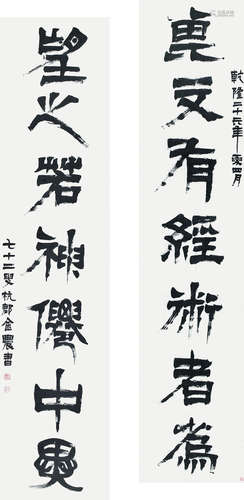 乾隆二十六年夏四月
有經術者為
望之若神僊中
七十二叟杭郡金農書